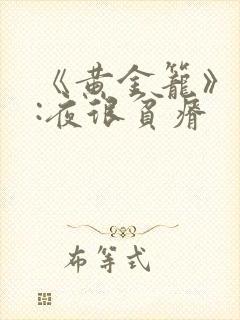 《黄金笼》
:夜很贫瘠
布等式